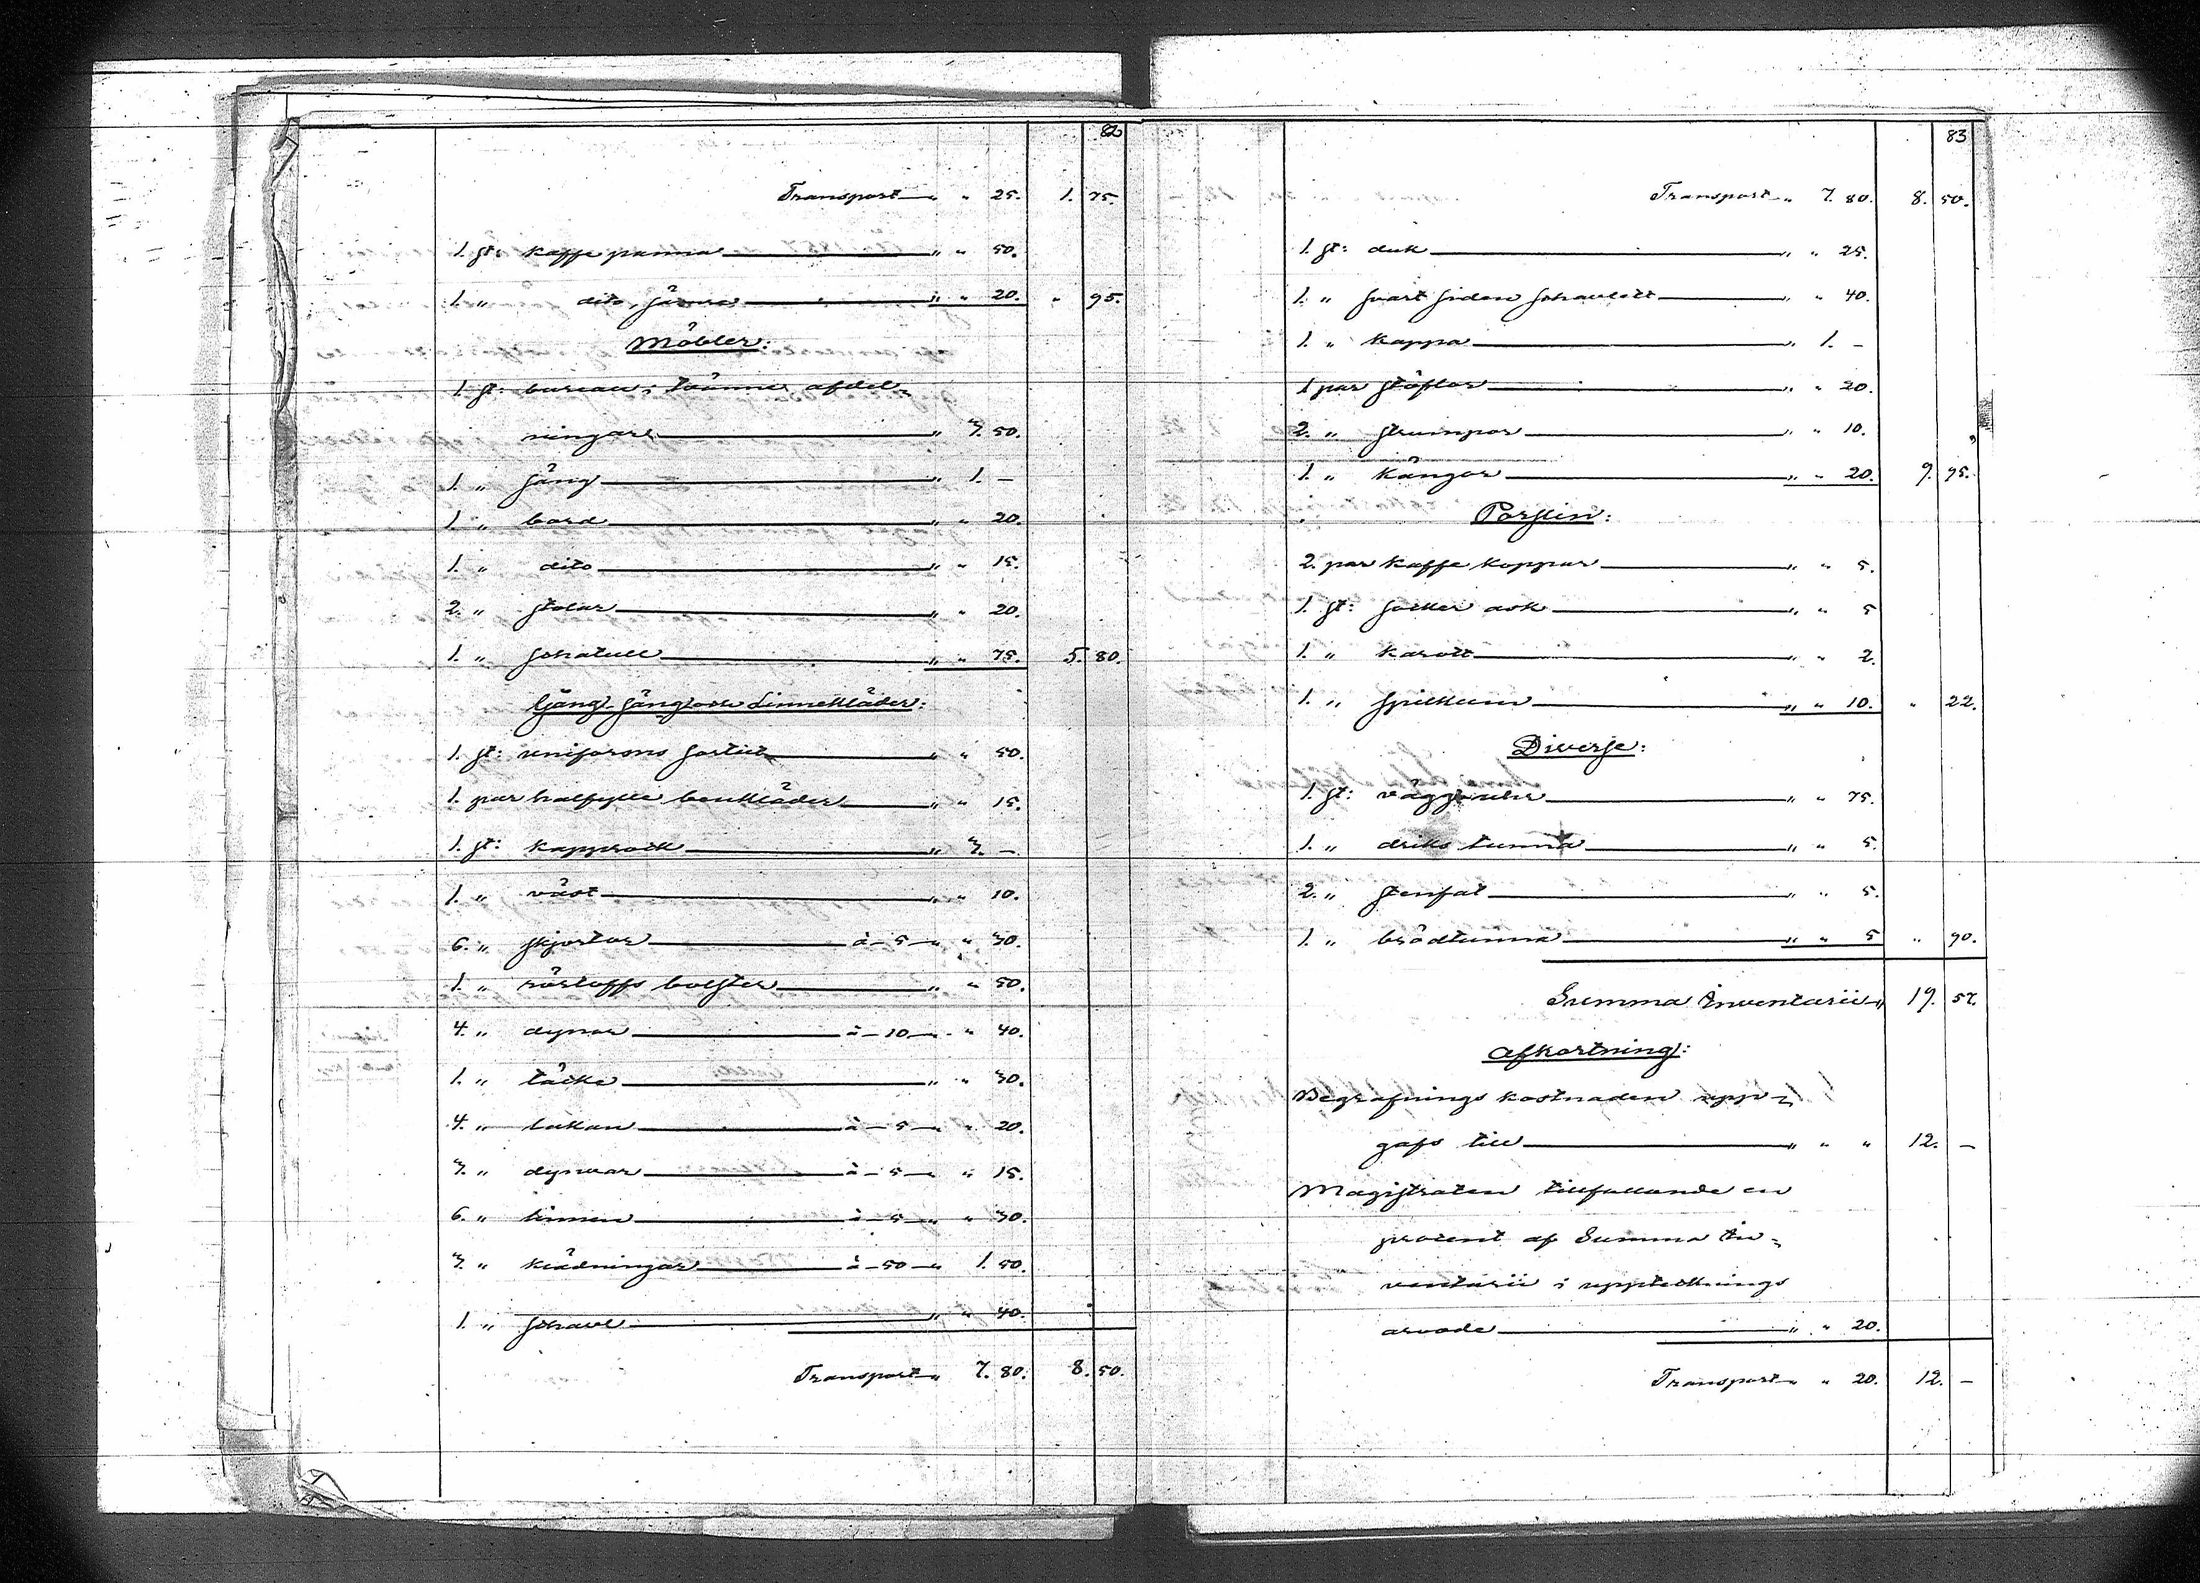 82
Transport — " " 25. 1. 75.
1. st: kaffe panna — " " 50.
1. " dito, järn — " " 20. " 95.
Möbler:
1. st: bureau i tvänne afdel
ningar — " 3. 50.
1. " säng — " 1. –
1. " bord — " " 20.
1. " dito — " " 15.
2. " stolar — " " 20.
1. " schatull — " " 75. 5. 80.
Gång- säng och Linnekläder:
1. st: uniforms sortut — " " 50.
1. par halfylle benkläder — " " 15.
1. st: kapprock — " 3. –
1. " väst — " " 10.
6. " skjortor — à – 5 – " " 30.
1. " bolster — " " 50.
4. " dynor — à – 10 – " " 40.
1. " täcke — " " 30.
4. " lakan — à – 5 – " " 20.
3. " dynvar — à – 5 – " " 15.
6. " linnen — à – 5 – " " 30.
3. " klädningar — à – 50 – " 1. 50.
1. " schavl — " " 40.
Transport " 7. 80. 8. 50.
83
Transport — " 7. 80. 8. 50.
1. st: duk — " " 25.
1. " svart siden schavlett — " " 40.
1. " kappa — " 1. –
1 par stöflor — " " 20.
2. " strumpor — " " 10.
1. " kängor — " " 20. 9. 95.
Porslin:
2. par kaffe koppar — " " 5.
1. st: socker ask — " " 5
1. " karott — " " 2.
1. " spilkum — " " 10. " 22.
Diverse:
1. st: väggouhr — " " 75.
1. " driks tunna — " " 5.
2. " stenfat — " " 5.
1. " brödtunna — " " 5 " 90.
Summa Inventarii " 19. 57.
Afkortning:
Begrafnings kostnaden upp-
gafs till — " " " 12. –
Magistraten tillfallande en
procent af Summa In-
ventarii i uppteknings
arvode — " " 20.
Transport " " 20. 12. –